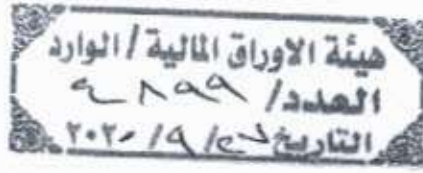 هيئة الاوراق المالية / الوارد
العدد/ ٤٨٩٩
التاريخ / ٩ / ٢٠٢٠